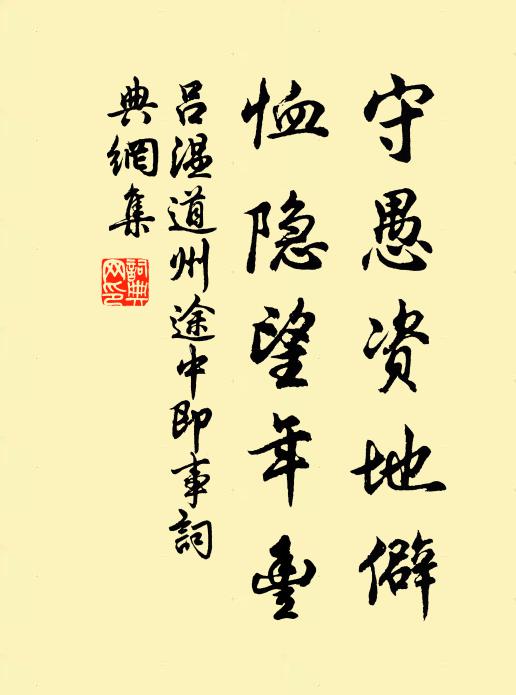 守愚资地僻
恤隐望年豊
吕温道州途中即事詞
典網集
詞典
网印